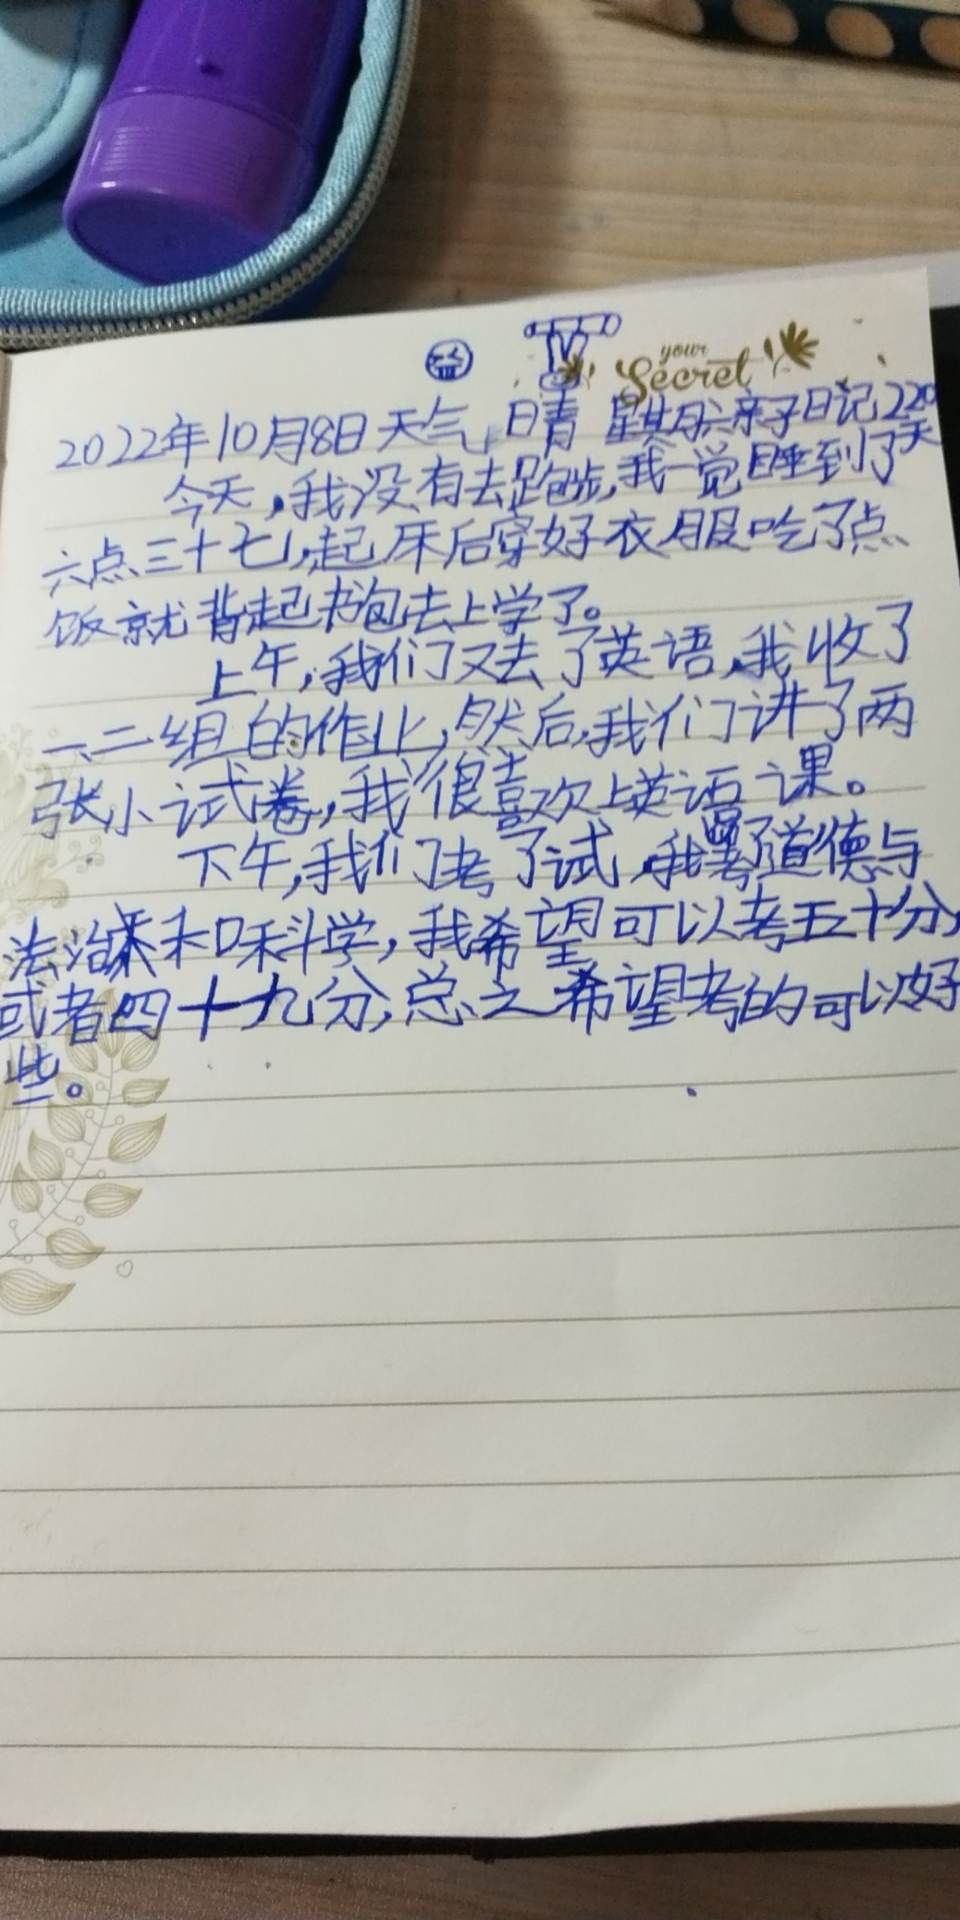 your
Secret
2022年10月8日 天气,日青 星期六亲子日记220
天
今天,我没有去跑步,我一觉睡到了
六点三十七,起床后穿好衣服吃了点
饭就背起书包去上学了。
上午,我们又去了英语,我收了
一、二组的作业,然后,我们讲了两
张小试卷,我很喜欢上英语课。
下午,我们考了试,我考了道德与
法治和科学,我希望可以考五十分,
或者四十九分,总之希望考的可以好
些。